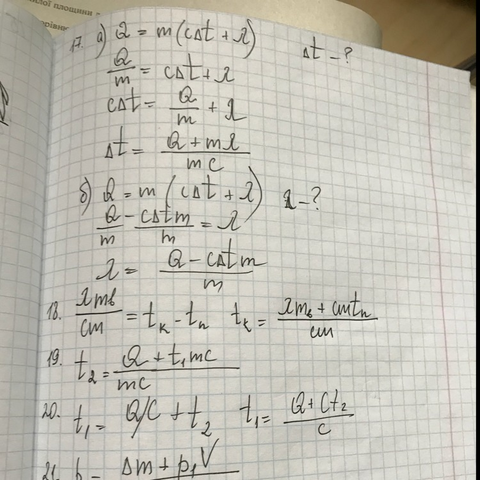 илої площини
17. а) Q = m(cΔt + λ)    Δt - ?
Q/m = cΔt + λ
cΔt = Q/m + λ
Δt = (Q + mλ)/(mc)
б) Q = m(cΔt + λ)    λ - ?
Q/m - cΔtm/m = λ
λ = (Q - cΔtm)/m
18. λmв/cm = tк - tп    tк = (λmв + cmtп)/cm
19. t₂ = (Q + t₁mc)/mc
20. t₁ = Q/C + t₂    t₁ = (Q + Ct₂)/c
21. Δm + ρ₁V